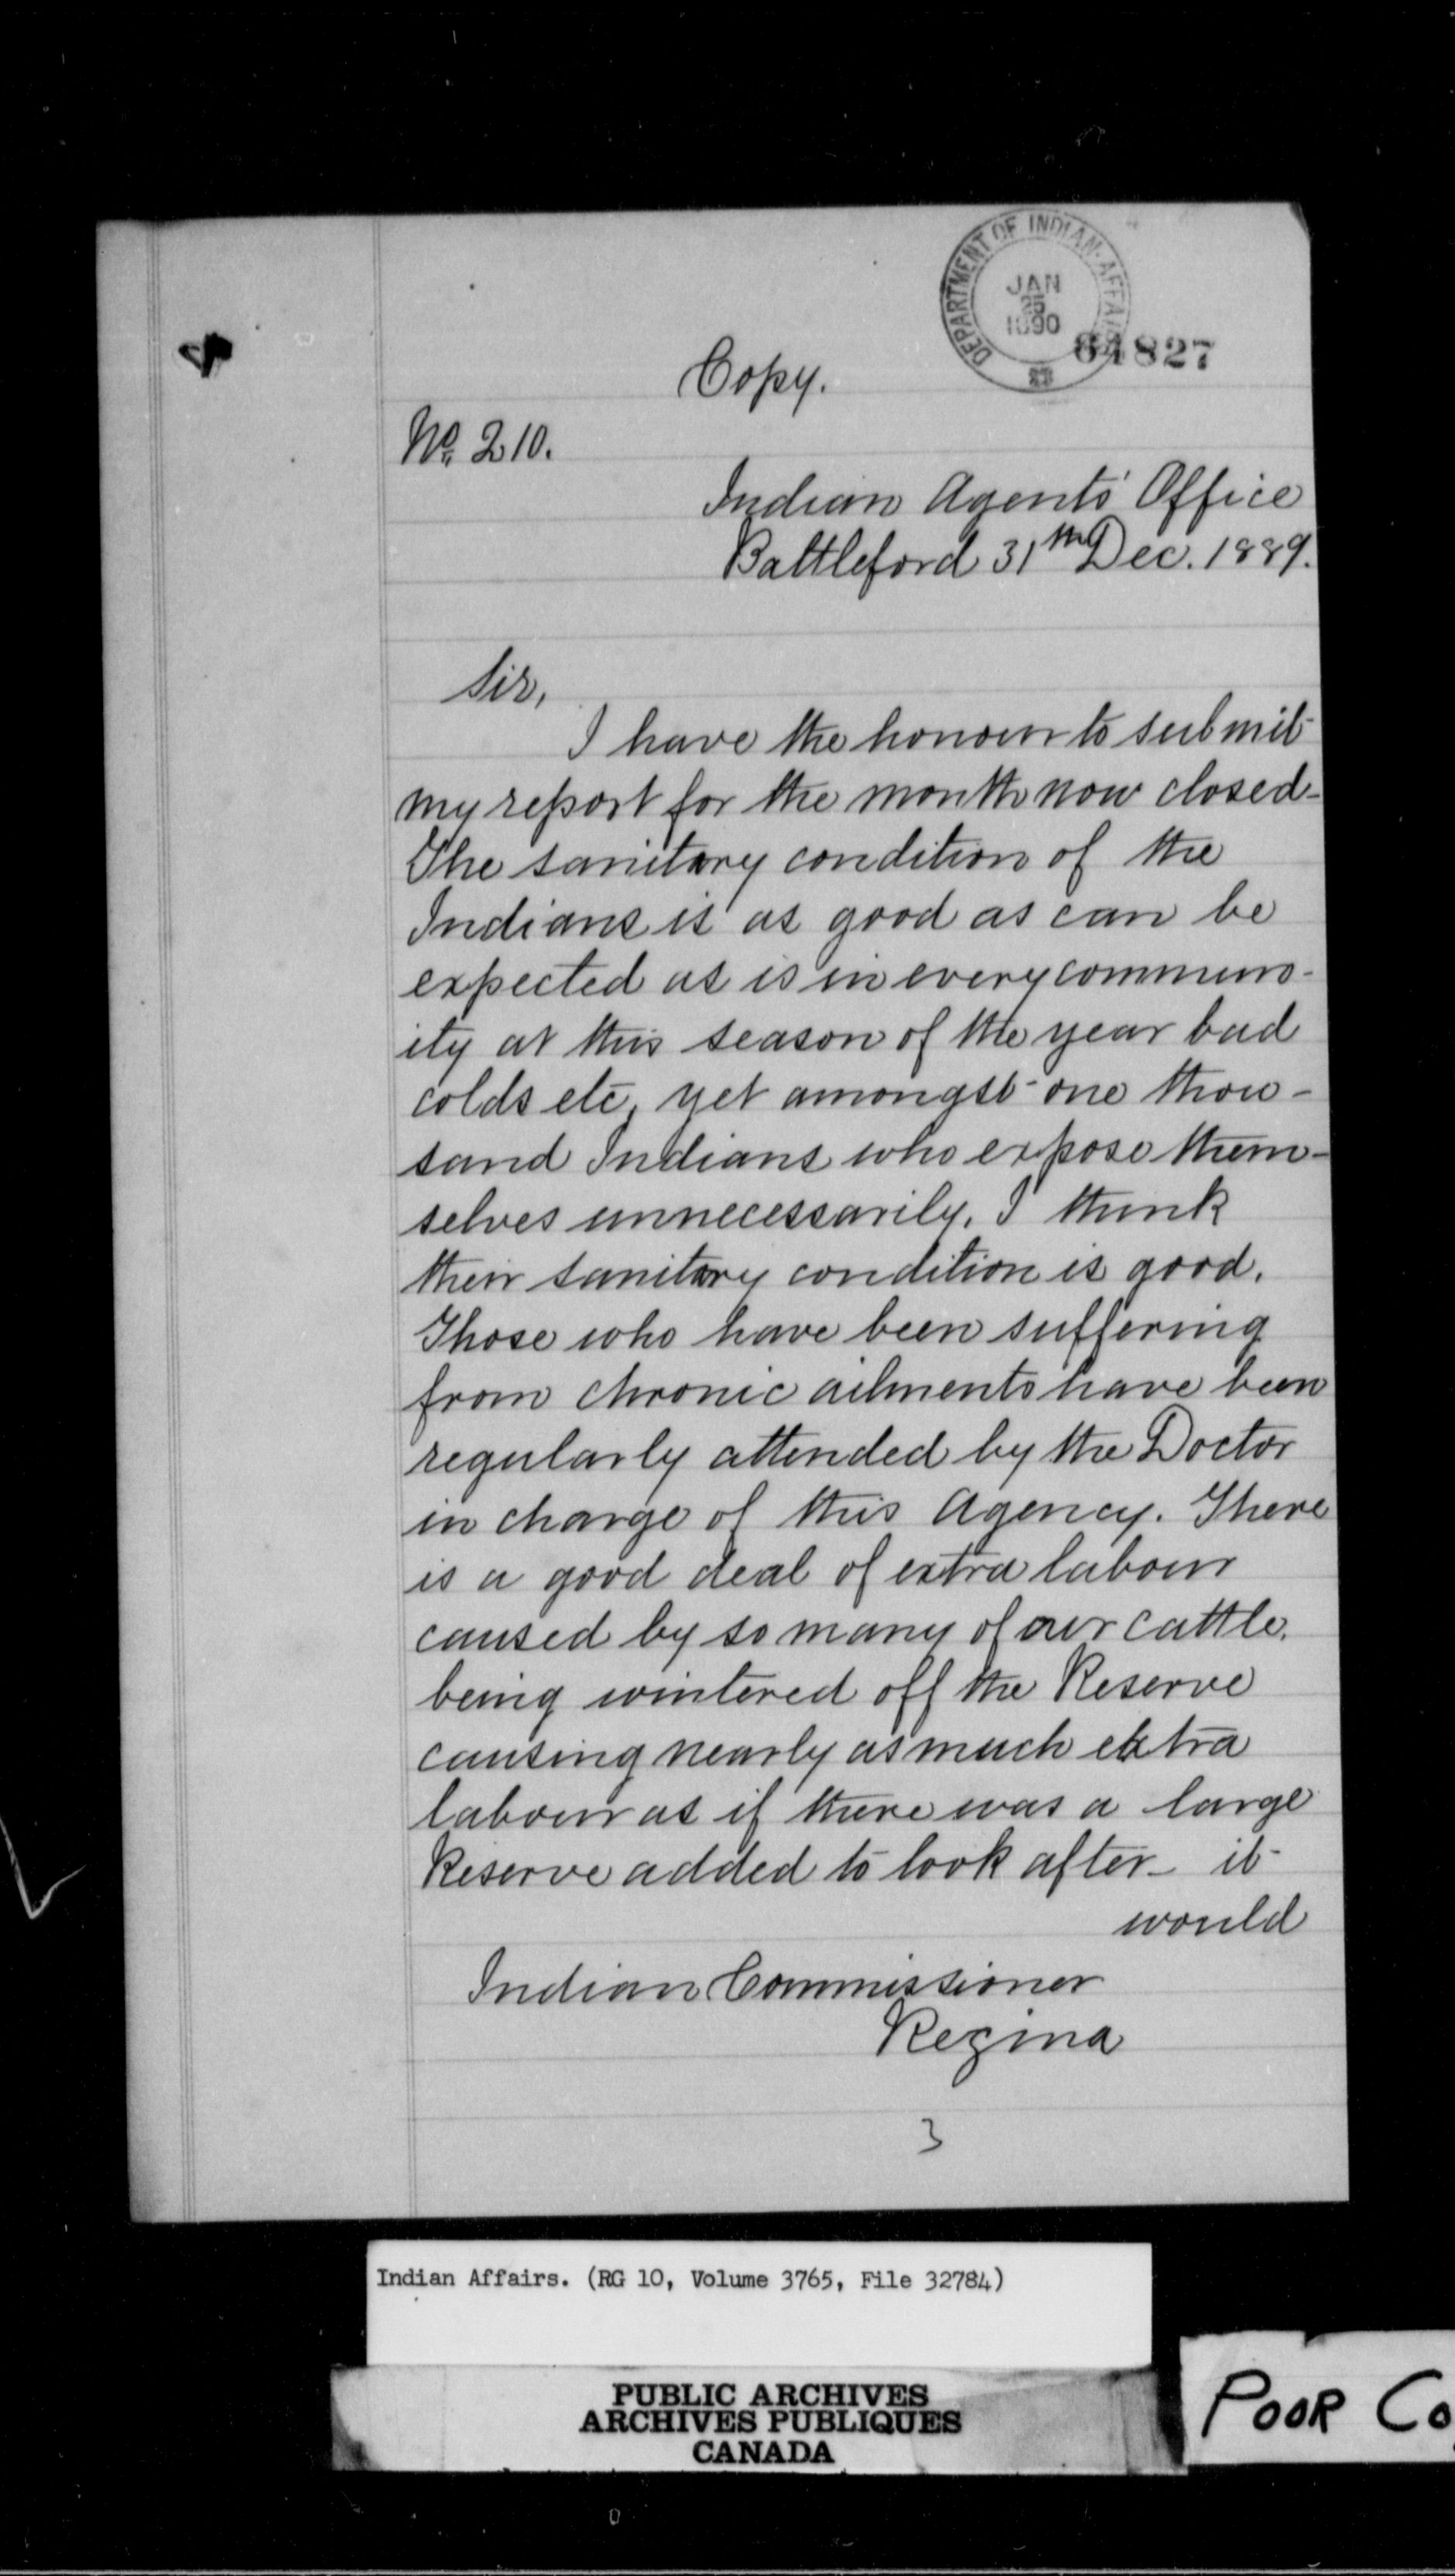 DEPARTMENT OF INDIAN AFFAIRS
JAN
25
1890
64827
Copy.
No. 210.
Indian Agents' Office
Battleford 31th Dec. 1889.
Sir,
I have the honour to submit
my report for the month now closed-
The sanitary condition of the
Indians is as good as can be
expected as is in every commun-
ity at this season of the year bad
colds etc, yet amongst one thou-
sand Indians who expose them-
selves unnecessarily, I think
their sanitary condition is good.
Those who have been suffering
from chronic ailments have been
regularly attended by the Doctor
in charge of this Agency. There
is a good deal of extra labour
caused by so many of our cattle.
being wintered off the Reserve
causing nearly as much extra
labour as if there was a large
Reserve added to look after- it
would
Indian Commissioner
Regina
3
Indian Affairs. (RG 10, Volume 3765, File 32784)
PUBLIC ARCHIVES
ARCHIVES PUBLIQUES
CANADA
POOR Co